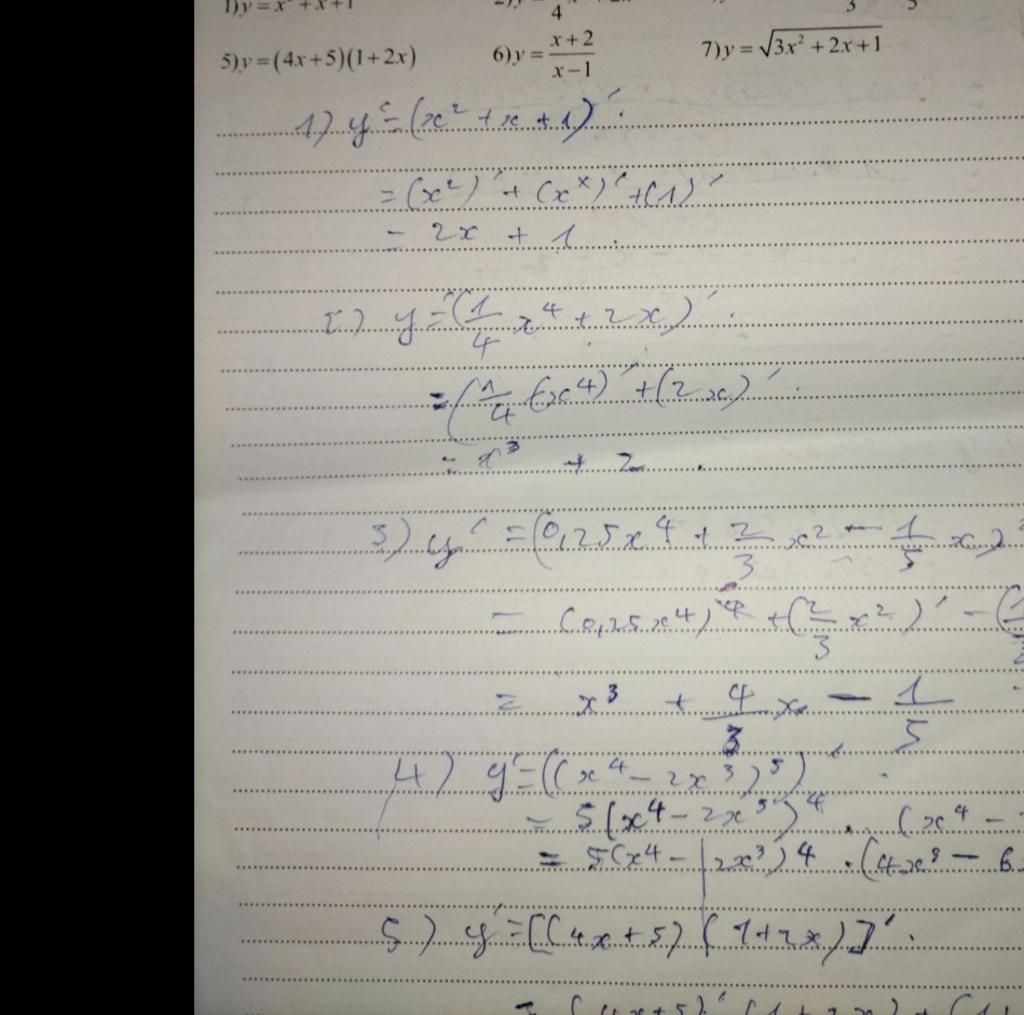 1)y=x² +x+1
4
3
5)y=(4x+5)(1+2x) 6)y=\frac{x+2}{x-1} 7)y=\sqrt{3x²+2x+1}
1) y'=(x²+x+1)'.
=(x²)'+(x^x)'+(1)'
= 2x + 1.
2) y'=(\frac{1}{4}x⁴+2x)'.
=(\frac{1}{4}(x⁴)'+(2x)'.
= x³ + 2.
3) y' =(0,25x⁴+\frac{2}{3}x²-\frac{1}{5}x)
= (0,25x⁴)' +(\frac{2}{3}x²)' - (
= x³ + \frac{4}{3}x - \frac{1}{5}
4) y'=((x⁴-2x³)⁵)'.
= 5(x⁴-2x³)⁴. (x⁴ -
= 5(x⁴-2x³)⁴ .(4x³ - 6
5) y'=[(4x+5)(1+2x)]'.
= (4x+5)'(1+2x)+(1